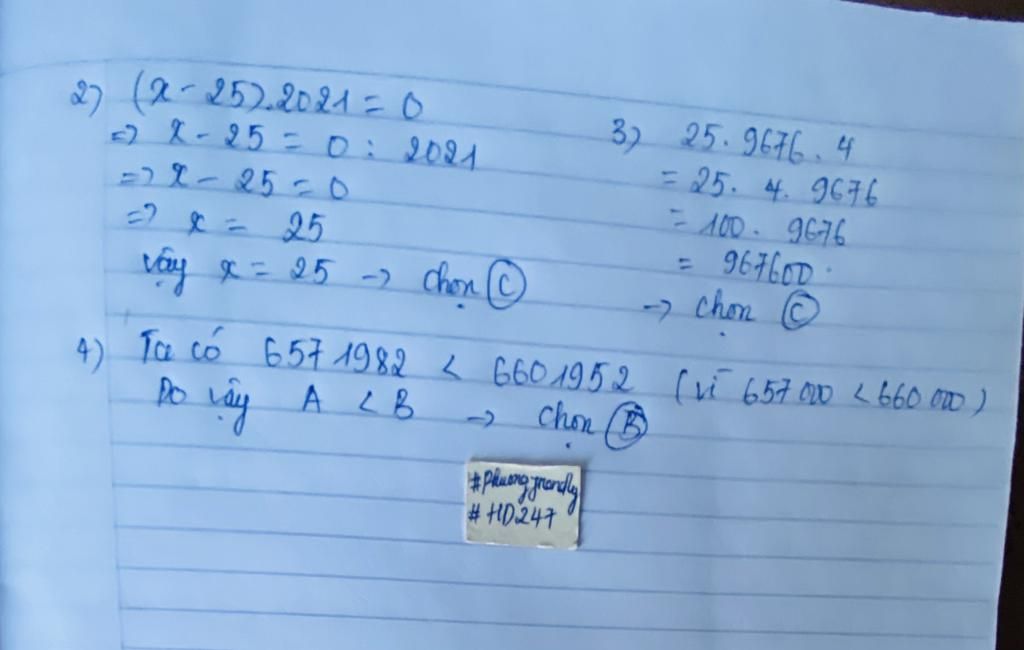 2) (x - 25).2021 = 0
=> x - 25 = 0 : 2021
=> x - 25 = 0
=> x = 25
Vậy x = 25 -> chọn C
3) 25. 9676. 4
= 25. 4. 9676
= 100. 9676
= 967600.
-> chọn C
4) Ta có 6571982 < 6601952 (vì 657000 < 660000)
Do vậy A < B -> chọn B
#Phuongfrendly
#HD247